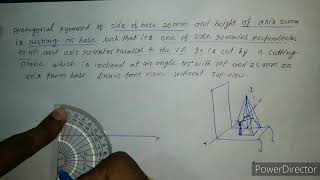 Pentagonal Pyramid of side of base 20mm and height of axis 50mm
is resting on base such that its one of side remains perpendicular
to HP and axis remains parallel to the VP. It is cut by a cutting
plane which is inclined at an angle 45° with HP and 25mm on
axis from base Draw font view, sectional Top view.
PowerDirector